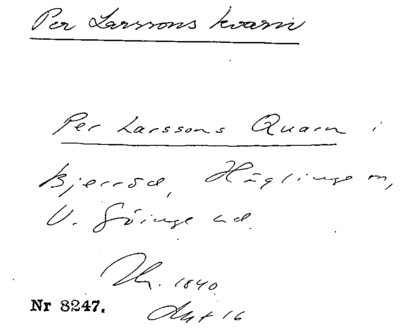 Per Larssons kvarn
Per Larssons Quarn i
Bjerröd, Häglinge sn,
V. Göinge hd.
Th. 1840.
Akt 16
Nr 8247.